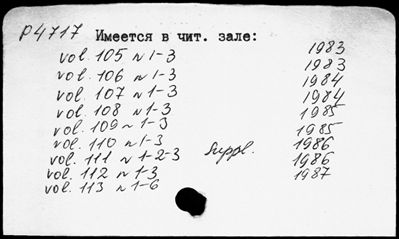 P4717 Имеется в чит. зале:
vol. 105 n 1-3 1983
vol. 106 n 1-3 1983
vol. 107 n 1-3 1984
vol. 108 n 1-3 1984
vol. 109 n 1-3 1985
vol. 110 n 1-3 1985
vol. 111 n 1-2-3 Suppl. 1986
vol. 112 n 1-3 1986
vol. 113 n 1-6 1987